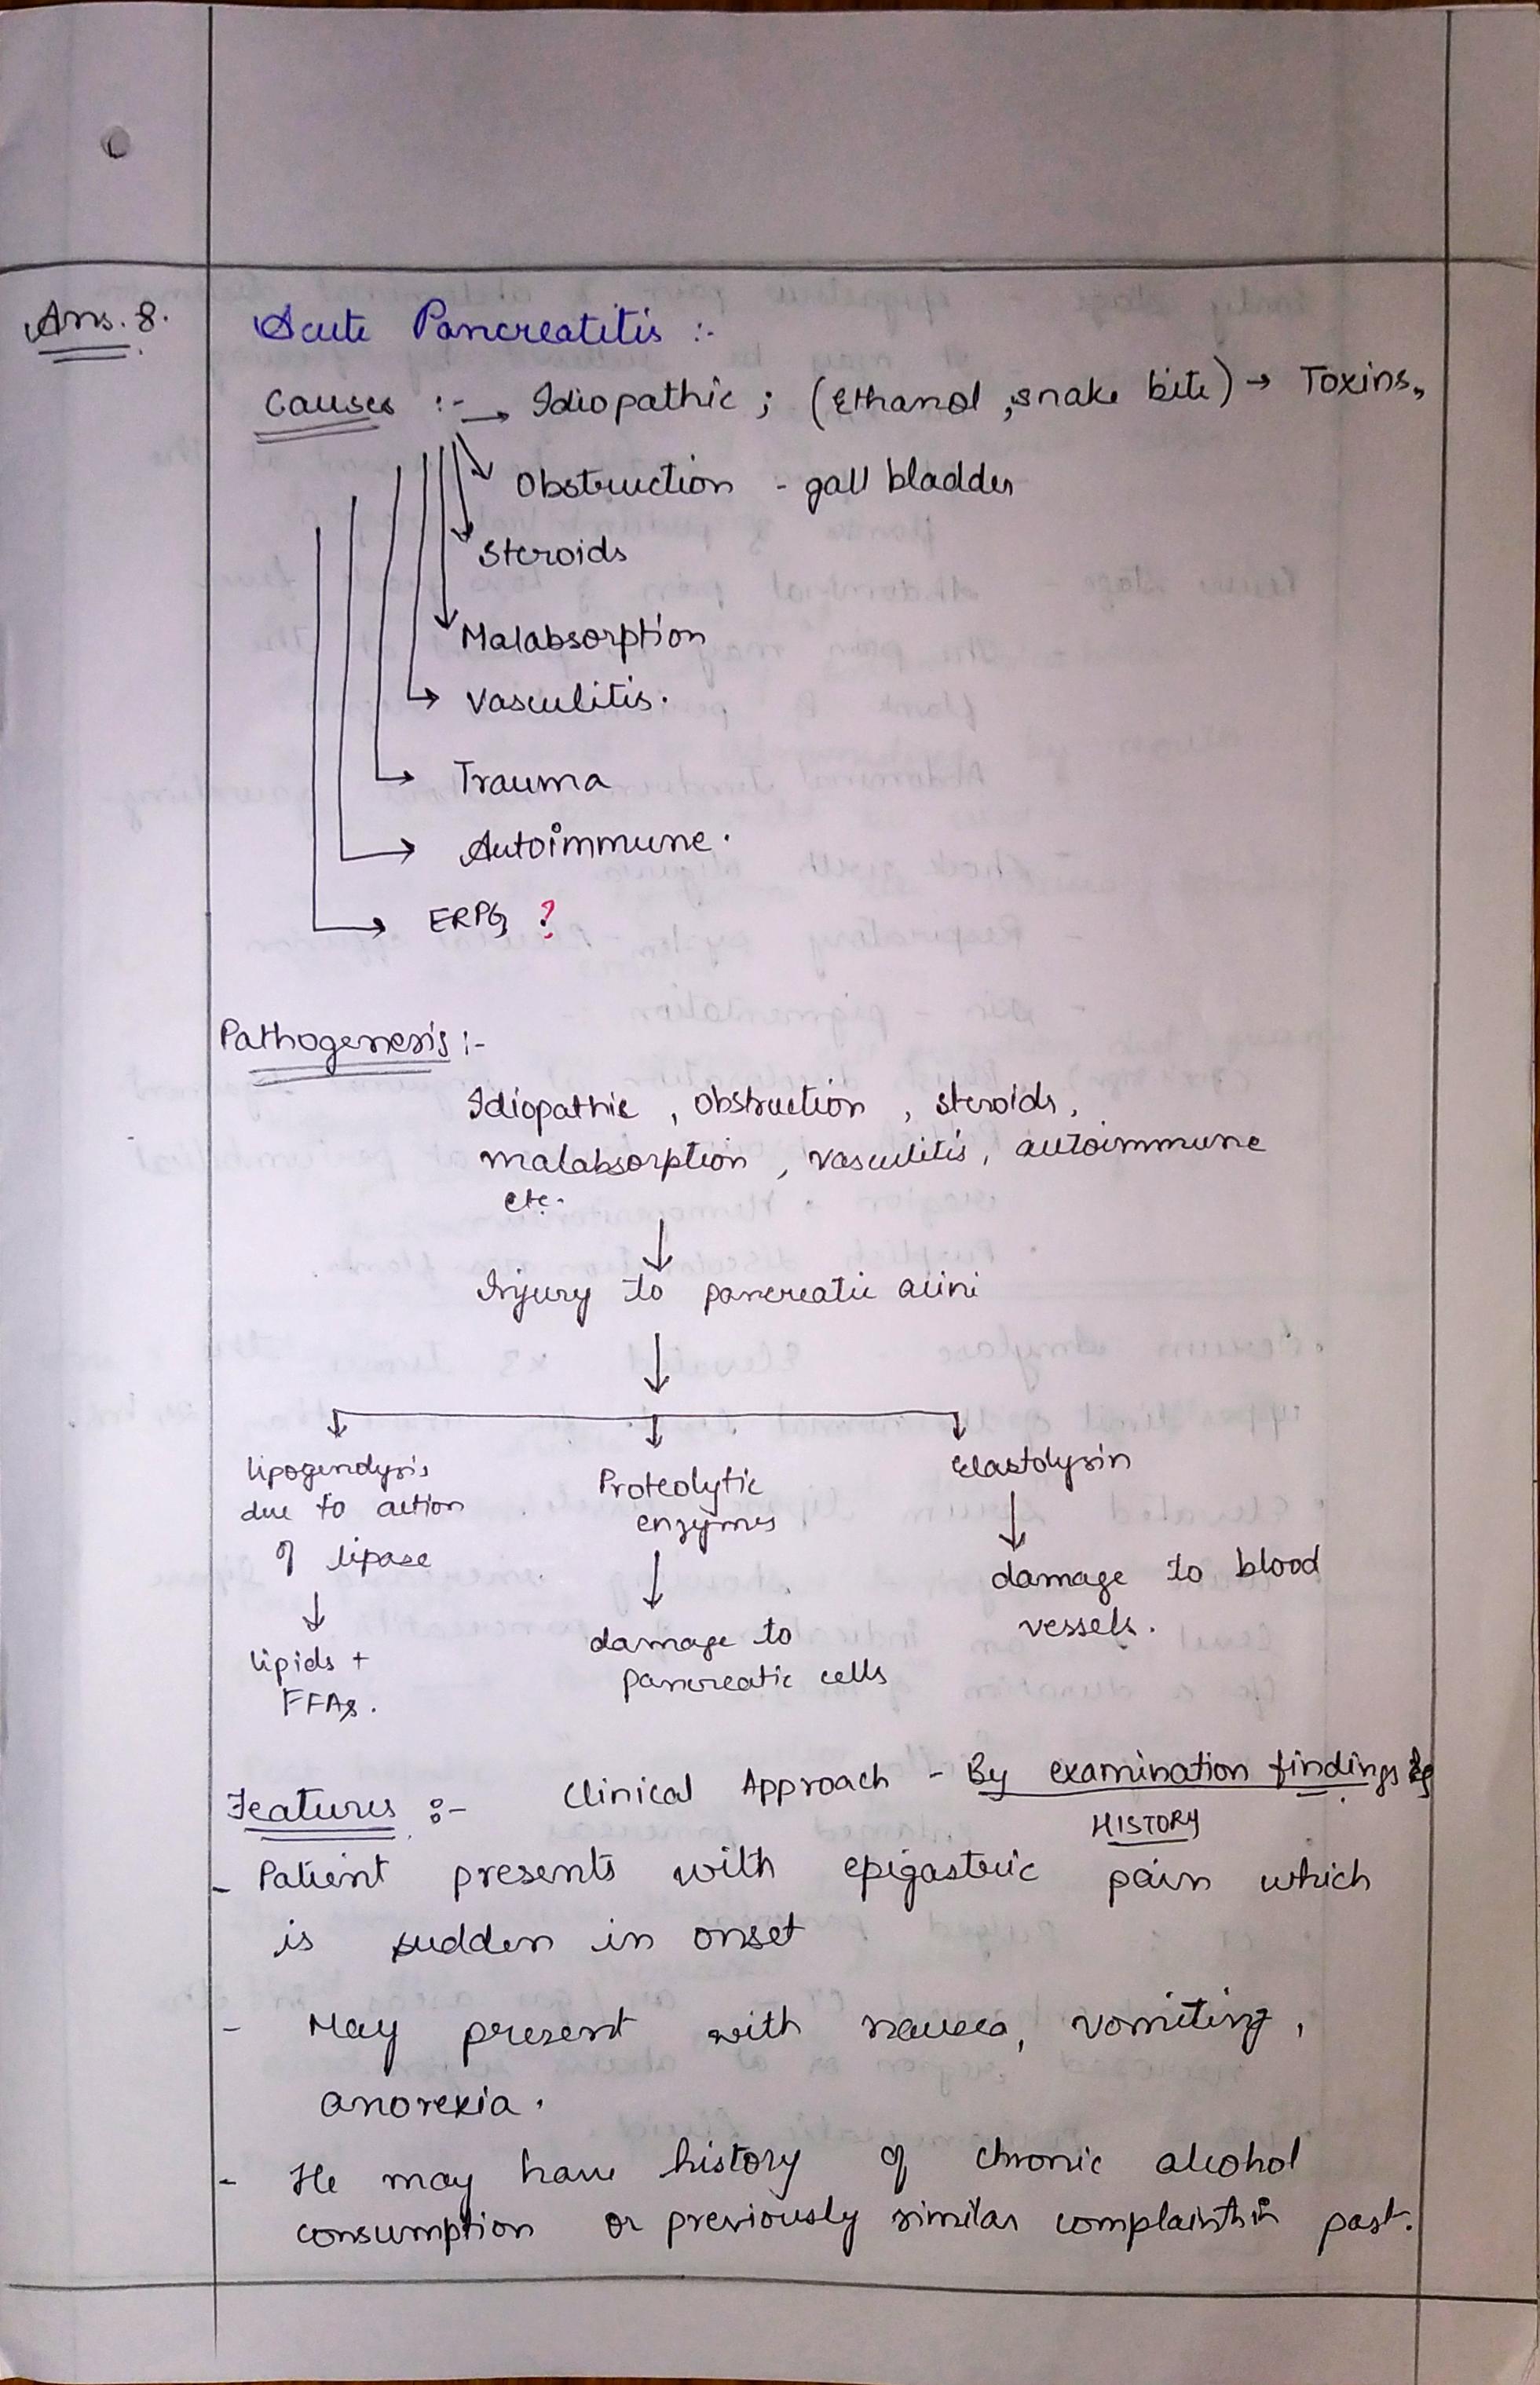 Ans. 8.
Acute Pancreatitis :-
Causes :- → Idiopathic ; (Ethanol, snake bite) → Toxins,
Obstruction - gall bladder
Steroids
Malabsorption
Vasculitis.
Trauma
Autoimmune.
ERPG ?
Pathogenesis :-
Idiopathic, obstruction, steroids,
malabsorption, vasculitis, autoimmune
etc.
Injury to pancreatic acini
lipogenolysis
due to action
of lipase
lipids +
FFAs.
Proteolytic
enzymes
damage to
pancreatic cells
Elastolysin
damage to blood
vessels.
Features :- Clinical Approach - By examination findings &
HISTORY
- Patient presents with epigastric pain which
is sudden in onset
- May present with nausea, vomiting,
anorexia.
- He may have history of chronic alcohol
consumption or previously similar complaints in past.